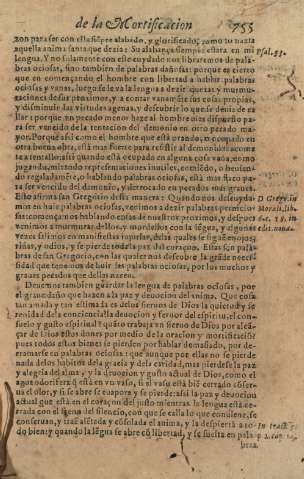 de la Mortificacion 755
zon para ser con ellas siẽpre alabado, y glorificado, como la tenia
aquella anima santa que dezia: Su alabança siempre estara en mi Psal. 33.
lengua. Y no solamente con este cuydado nos libraremos de pala-
bras ociosas, sino tambien de palabras dañosas: porque es cierto
que en començando el hombre con libertad a hablar palabras
ociosas y vanas, luego se le va la lengua a dezir quexas y murmu-
raciones de sus proximos, y a contar vanamente las cosas propias,
y dissimular las virtudes agenas, y descubrir lo que se deuia de ca-
llar: porque en pecado menor haze al hombre mas dispuesto pa-
ra ser vencido de la tentacion del demonio en otro pecado ma-
yor. Porque assi como el hombre que està orando, o ocupado en
otra buena obra, està mas fuerte para resistir al demonio si acome-
te a tentallo: assi quando està ocupado en alguna cosa vana, como
jugando, mirando representaciones inutiles, comiẽdo, o beuiendo
regaladamẽte, o hablando palabras ociosas, està mas flaco pa-
ra ser vencido del demonio, y derrocado en pecados mas graues.
Esto afirma san Gregorio desta manera: Quando nos descuydamos D. Grego. in
en hablar palabras ociosas, venimos a dezir palabras pernicio- Moralis, lib.
sas: començamos hablando cosas de nuestros proximos, y despues
venimos a murmurar dellos, y mordellos con la lẽgua, y algunas
vezes salimos en manifiestas injurias, de las quales se siguẽ enojos,
riñas, y odios, y se pierde toda la paz del coraçon. Estas son pala-
bras de san Gregorio, con las quales nos descubre la grãde neces-
sidad que tenemos de huir las palabras ociosas, por los muchos y
graues pecados que dellas nacen.
Deuemos tambien guardar la lengua de palabras ociosas, por
el gran daño que hazen a la paz y deuocion del anima. Que cosa
tan amada y tan estimada es del buen sieruo de Dios la quietud y se
renidad de la conciencia, la deuocion y feruor del espiritu, el con-
suelo y gusto spiritual? quãto trabaja vn sieruo de Dios por alcã-
çar de Dios estos dones por medio de la oracion y mortificaciõ?
pues todos estos bienes se pierden por hablar demasiado, por de-
rramarse en palabras ociosas: que aunque por ellas no se pierde
nada de los habitos de la gracia y de la caridad, mas pierdese la paz
y alegria del alma, y la deuocion y gusto actual de Dios, como el
agua odorifera q̃ està en vn vaso, si el vaso està biẽ cerrado cõser-
ua el olor, y si se abre se euapora y se pierde: assi la paz y deuocion
actual que està en el coraçon del justo mientras la lengua està ce-
rrada con el freno del silencio, con que se calla lo que conuiene, se
conseruan, y trae alẽtada y cõsolada el anima, y la despierta a to-
do bien: y quando la lẽgua se abre cõ libertad, y se suelta en pala-
bras